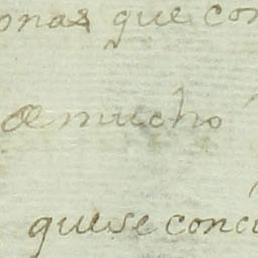 onas que con
de mucho
que se conci